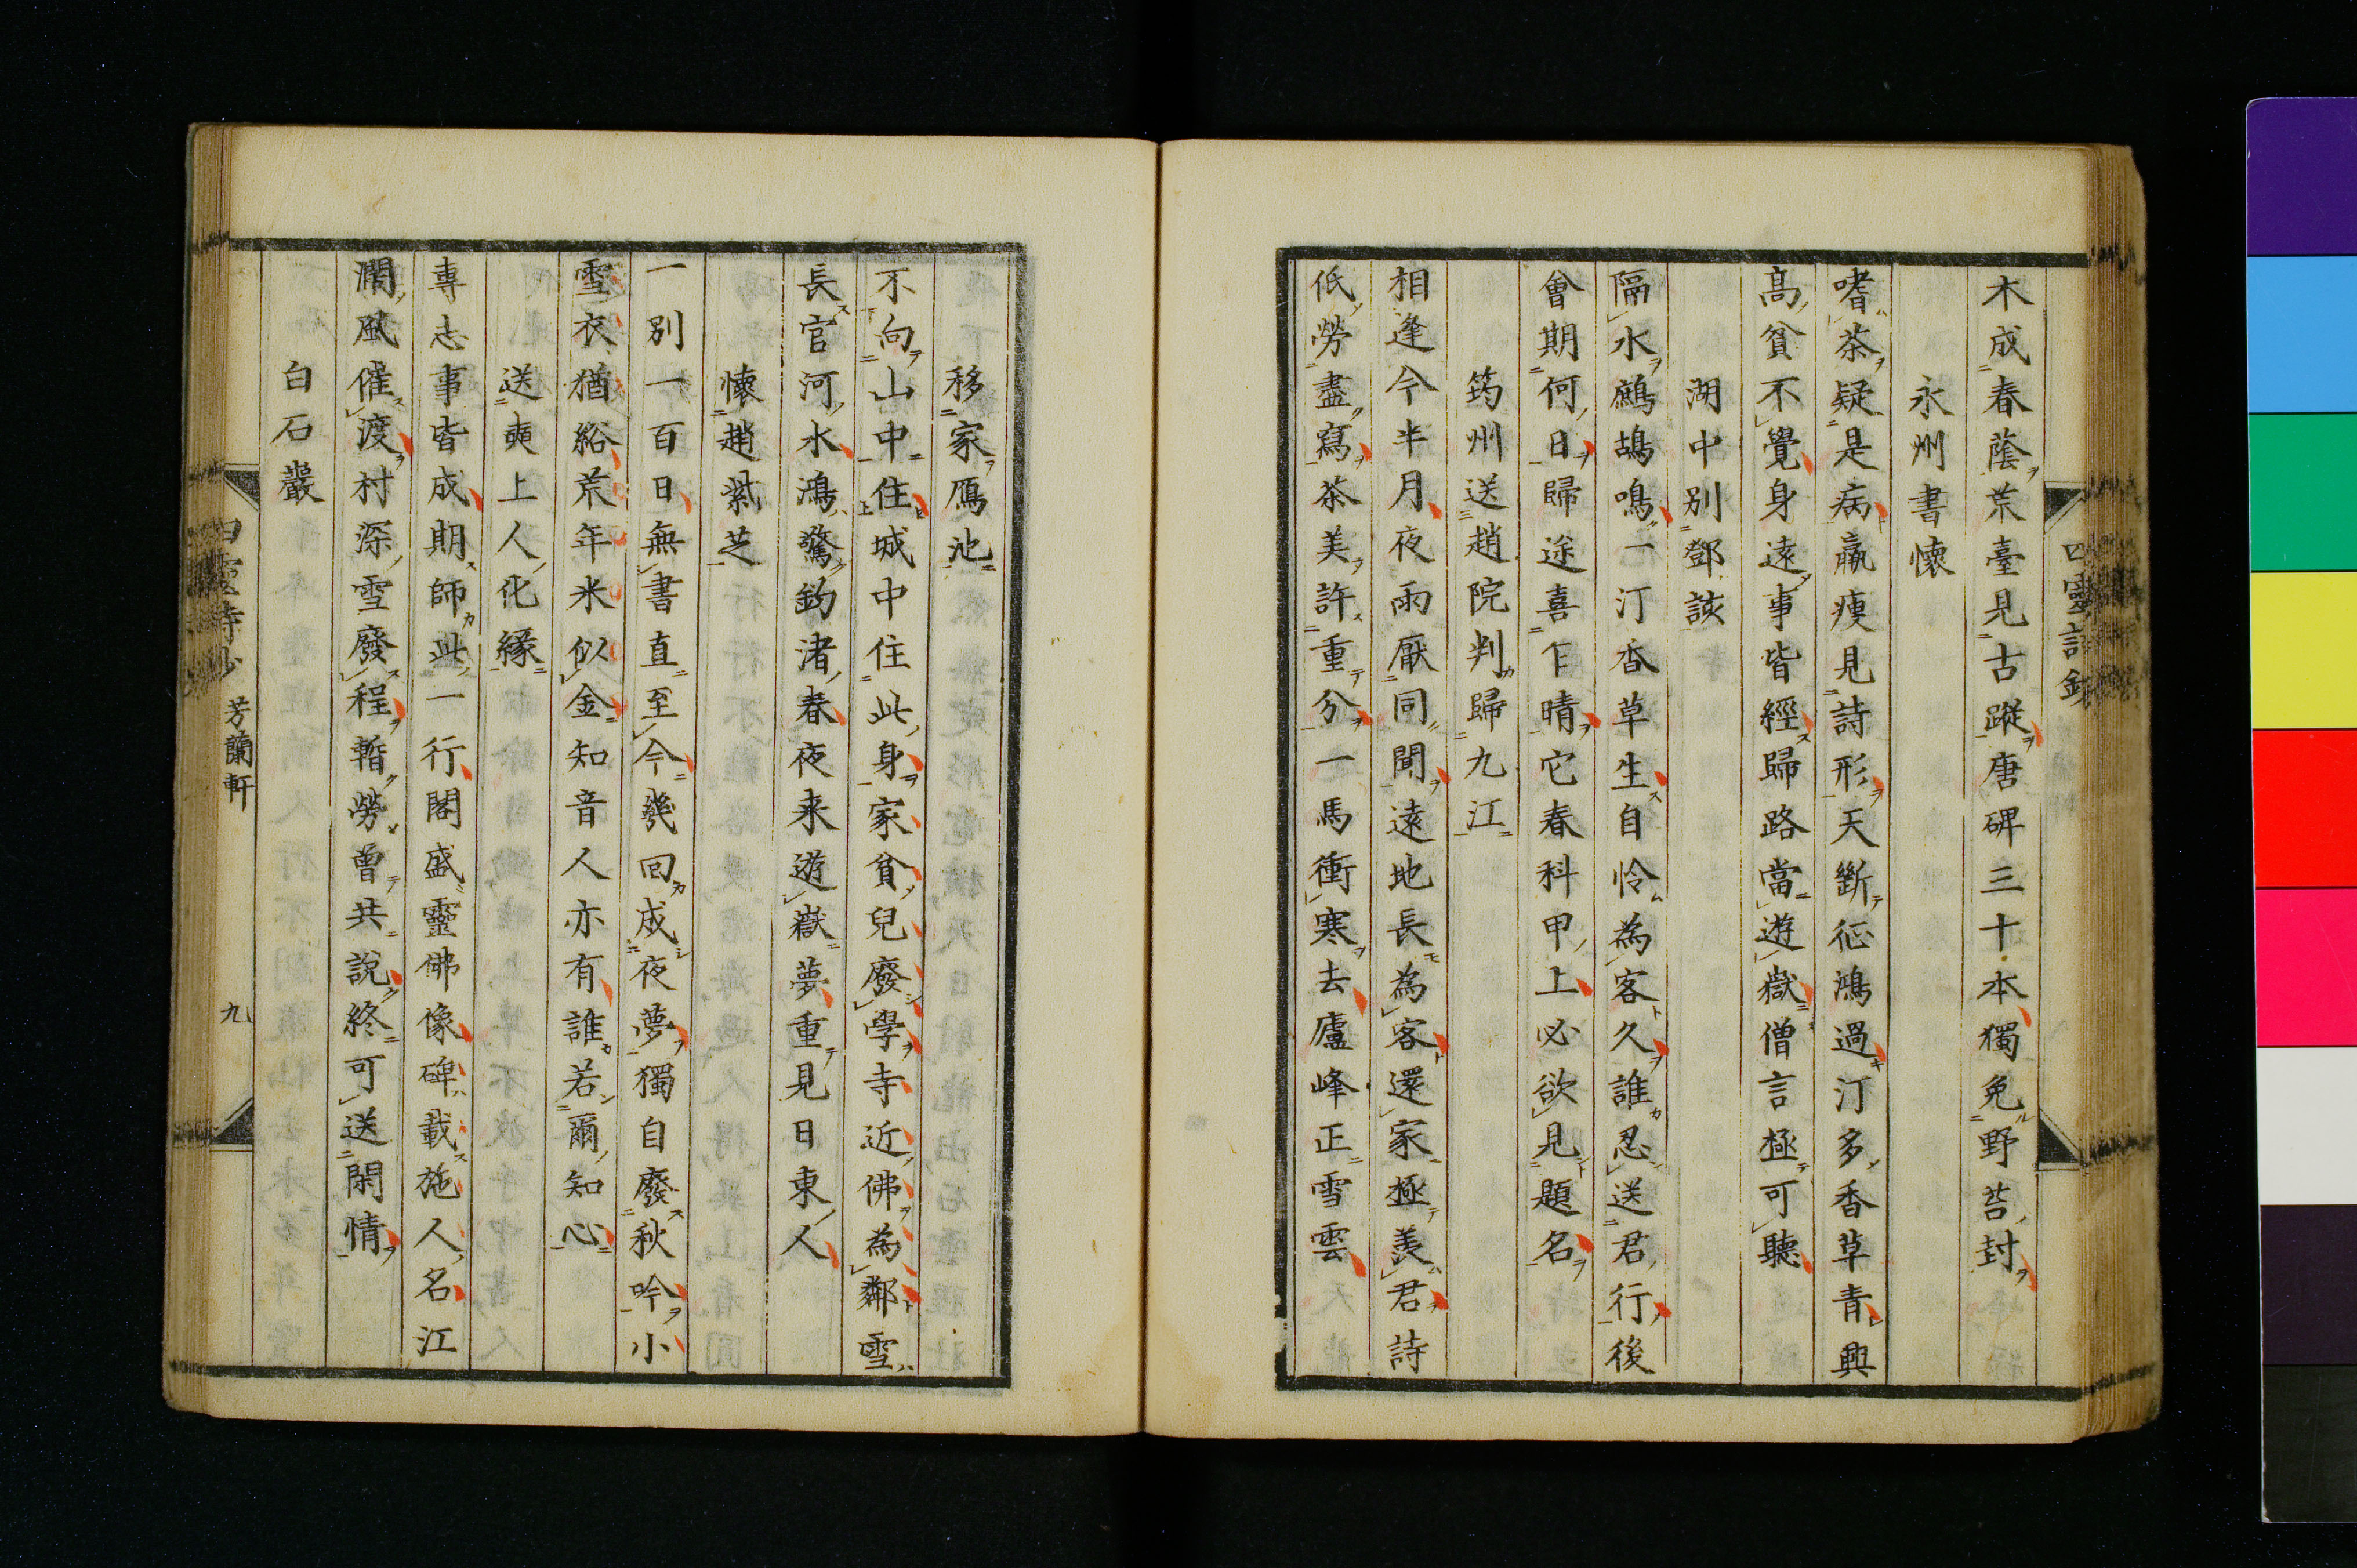 木成春蔭荒臺見古蹤唐碑三十本獨免野苔封
永州書懷
嗜茶疑是病羸瘦見詩形天斷征鴻過汀多香草青興
高貧不覺身遠事皆經歸路當遊嶽僧言極可聽
湖中別鄧該
隔水鷓鴣鳴一汀杏草生自怜為客久誰忍送君行後
會期何日歸途喜乍晴它春科甲上必欲見題名
筠州送趙院判歸九江
相逢今半月夜雨厭同聞遠地長為客還家極羨君詩
低勞盡寫茶美許重分一馬衝寒去廬峰正雪雲
四靈詩鈔
移家鴈池
不向山中住城中住此身家貧兒廢學寺近佛為鄰雪
長官河水鴻驚釣渚春夜来遊嶽夢重見日東人
懷趙紫芝
一別一百日無書直至今幾回成夜夢獨自廢秋吟小
雪衣猶綌荒年米似金知音人亦有誰若爾知心
送奭上人化緣
專志事皆成期師此一行閣盛靈佛像碑載施人名江
濶風催渡村深雪廢程暫勞曽共說終可送閑情
白石巖
四靈詩鈔 芳蘭軒 九